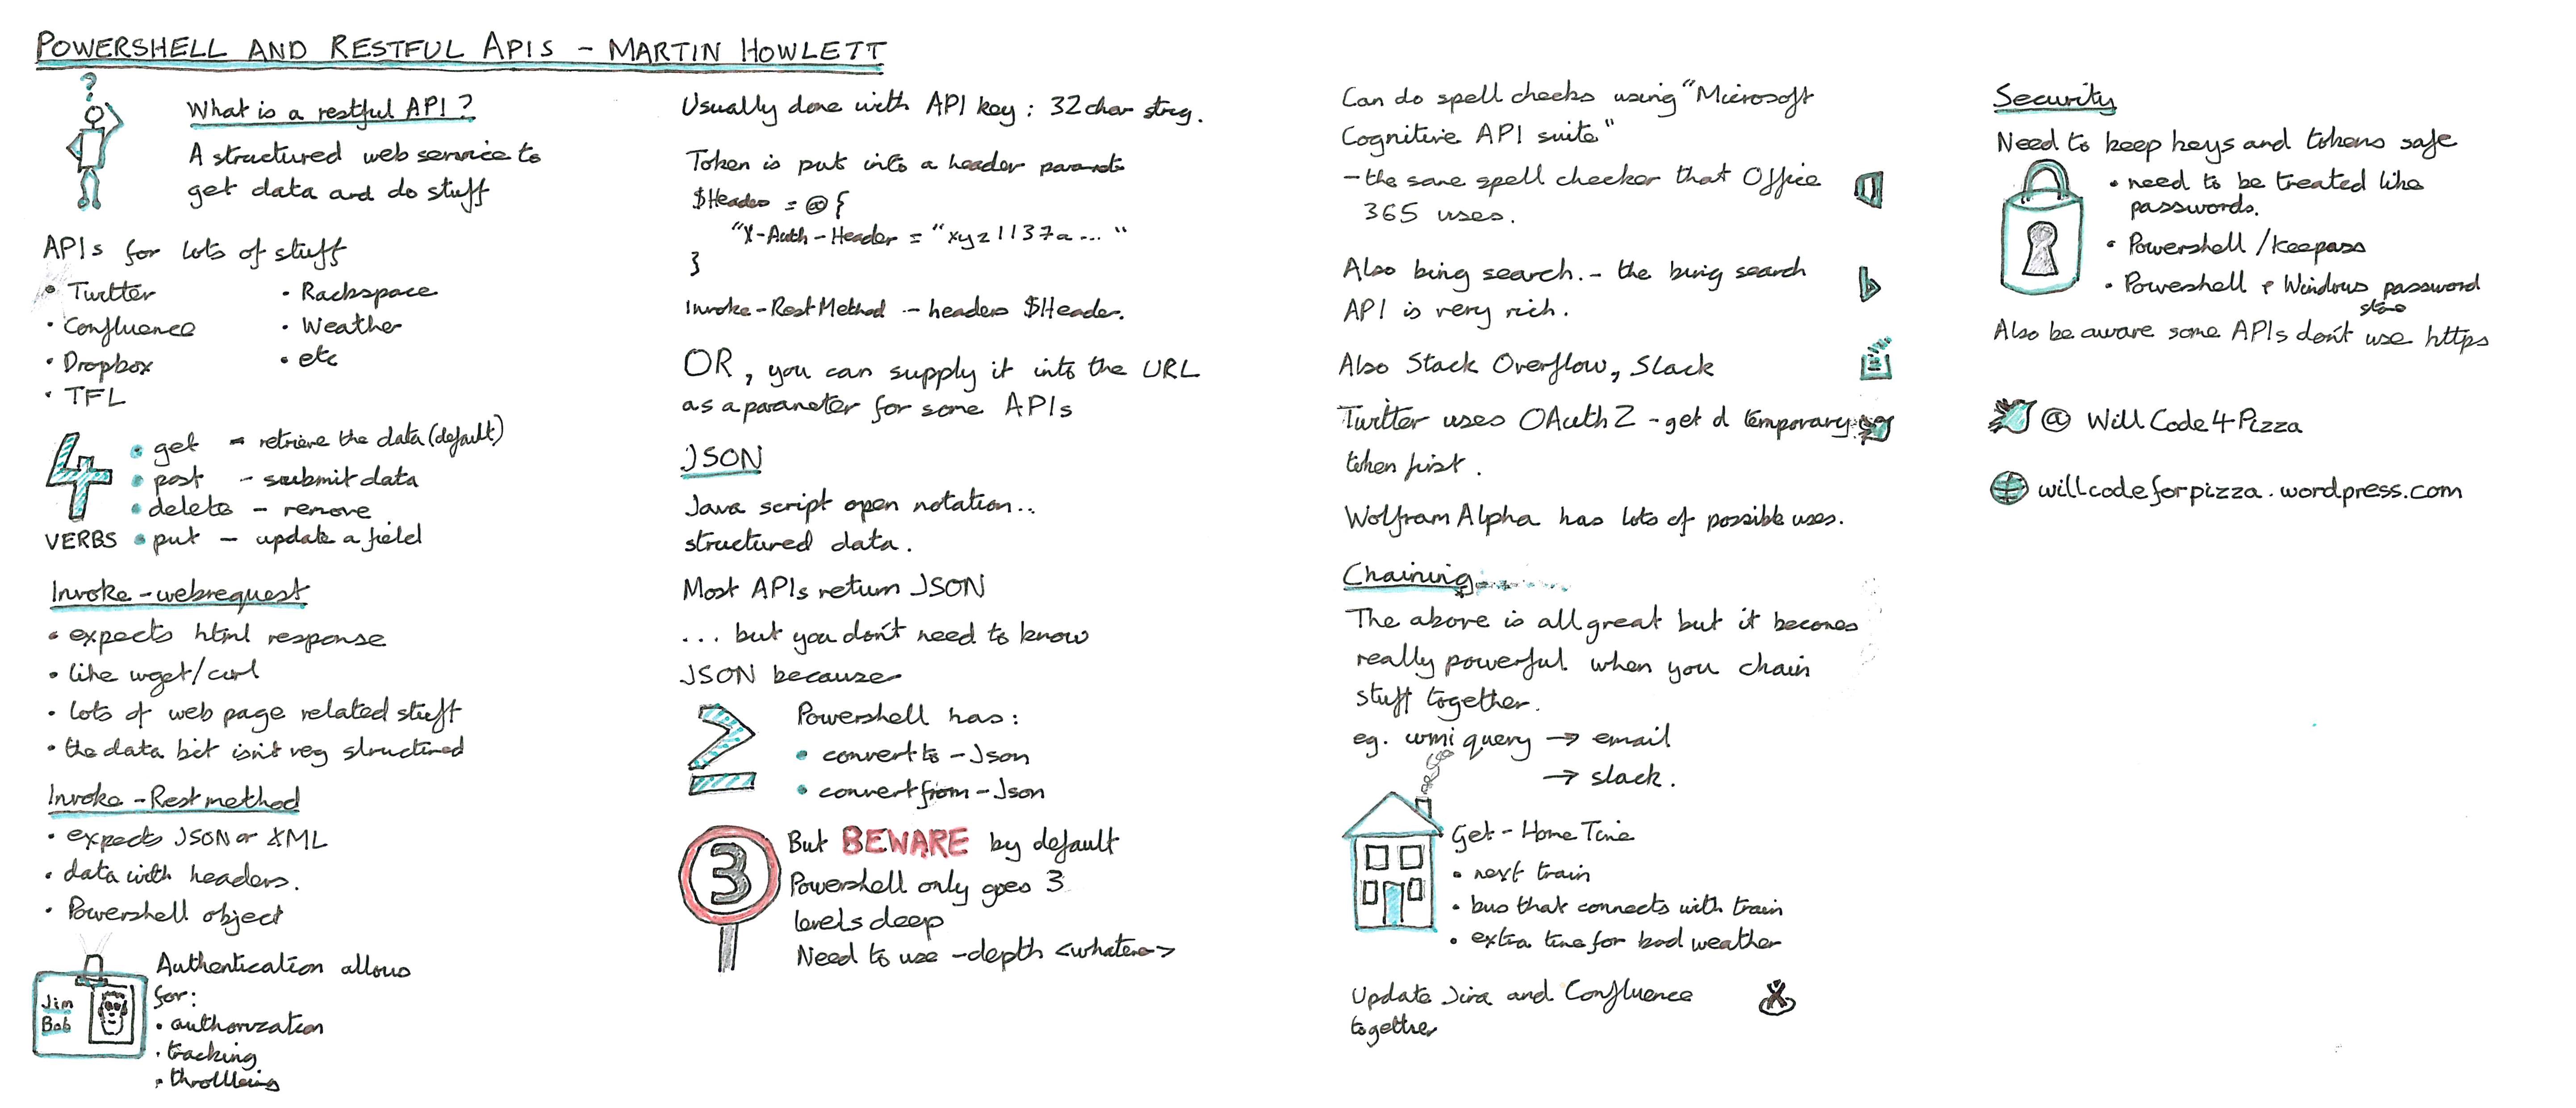 POWERSHELL AND RESTFUL APIS - MARTIN HOWLETT
?
What is a restful API?
A structured web service to
get data and do stuff
APIs for lots of stuff
• Twitter
• Confluence
• Dropbox
• TFL
• Rackspace
• Weather
• etc
4
VERBS
• get - retrieve the data (default)
• post - submit data
• delete - remove
• put - update a field
Invoke-webrequest
• expects html response
• like wget/curl
• lots of web page related stuff
• the data bit isn't very structured
Invoke-Restmethod
• expects JSON or XML
• data with headers.
• Powershell object
Jim
Bob
Authentication allows
for:
• authorization
• tracking
• throttling
Usually done with API key: 32 char strng.
Token is put into a header
$Header = @{
"X-Auth-Header = "xyz1137a... "
}
Invoke-RestMethod - headers $Header.
OR, you can supply it into the URL
as a parameter for some APIs
JSON
Java script open notation...
structured data.
Most APIs return JSON
... but you don't need to know
JSON because
Powershell has:
• convertto-Json
• convertfrom-Json
3
But BEWARE by default
Powershell only goes 3
levels deep
Need to use -depth <whatever>
Can do spell checks using "Microsoft
Cognitive API suite"
- the same spell checker that Office
365 uses.
Also bing search. - the bing search
API is very rich.
Also Stack Overflow, Slack
Twitter uses OAuth2 - get a temporary
token first.
Wolfram Alpha has lots of possible uses.
Chaining
The above is all great but it becomes
really powerful when you chain
stuff together.
eg. wmi query → email
→ slack.
Get-HomeTime
• next train
• bus that connects with train
• extra time for bad weather
Update Jira and Confluence
together
Security
Need to keep keys and tokens safe
• need to be treated like
passwords.
• Powershell/Keepass
• Poweshell & Windows password
store
Also be aware some APIs don't use https
@WillCode4Pizza
willcodeforpizza.wordpress.com